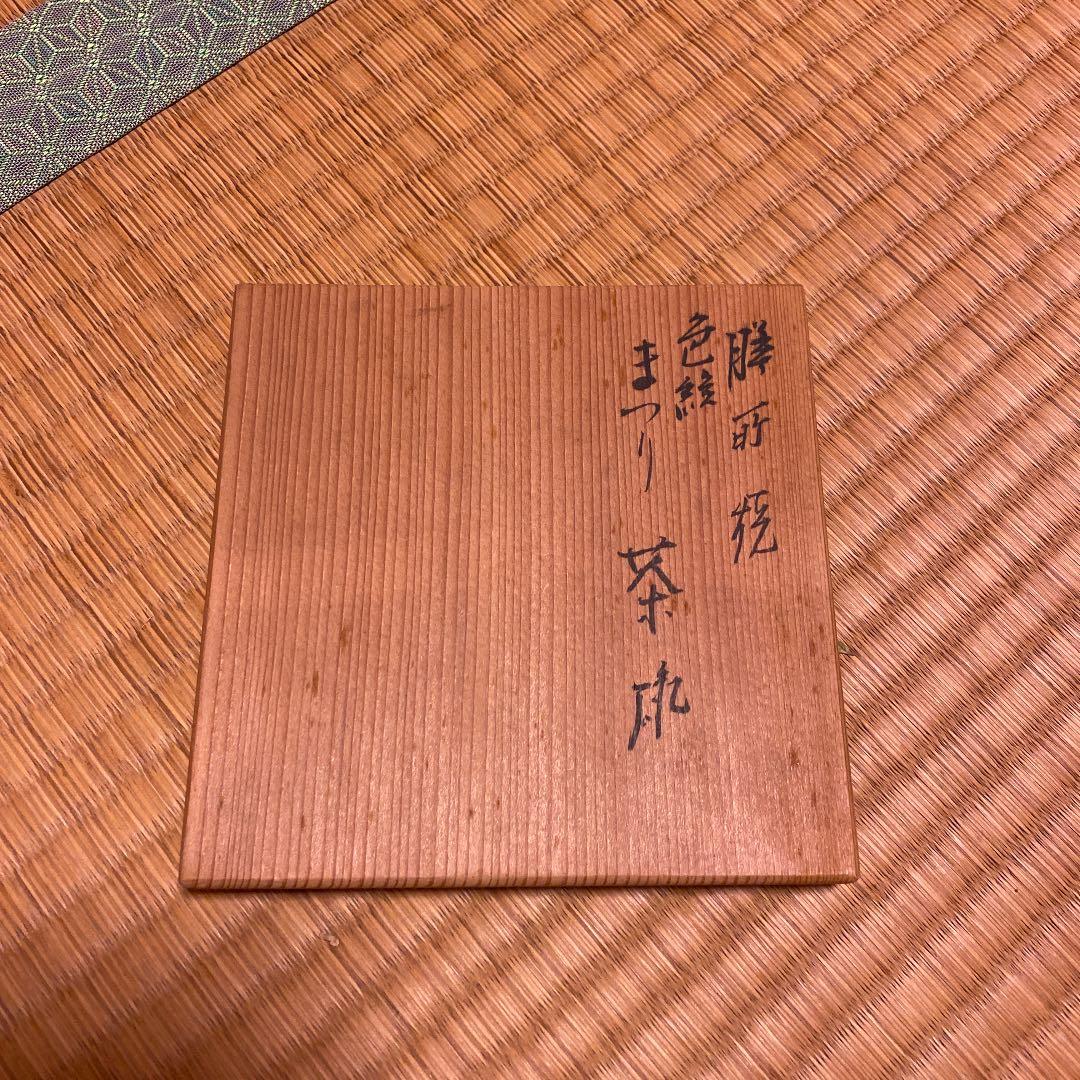 膳所焼
色絵
まつり 茶碗